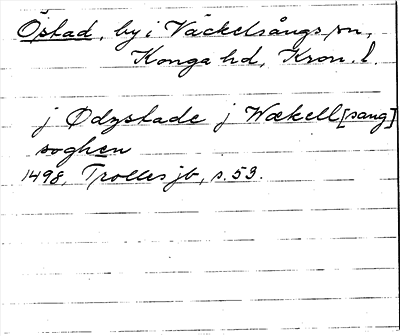 Östad, by i Väckelsångs sn,
Konga hd, Kron. l.
j Ødzstade j Wækell[sang]
soghen
1498, Trolles jb, s. 53.